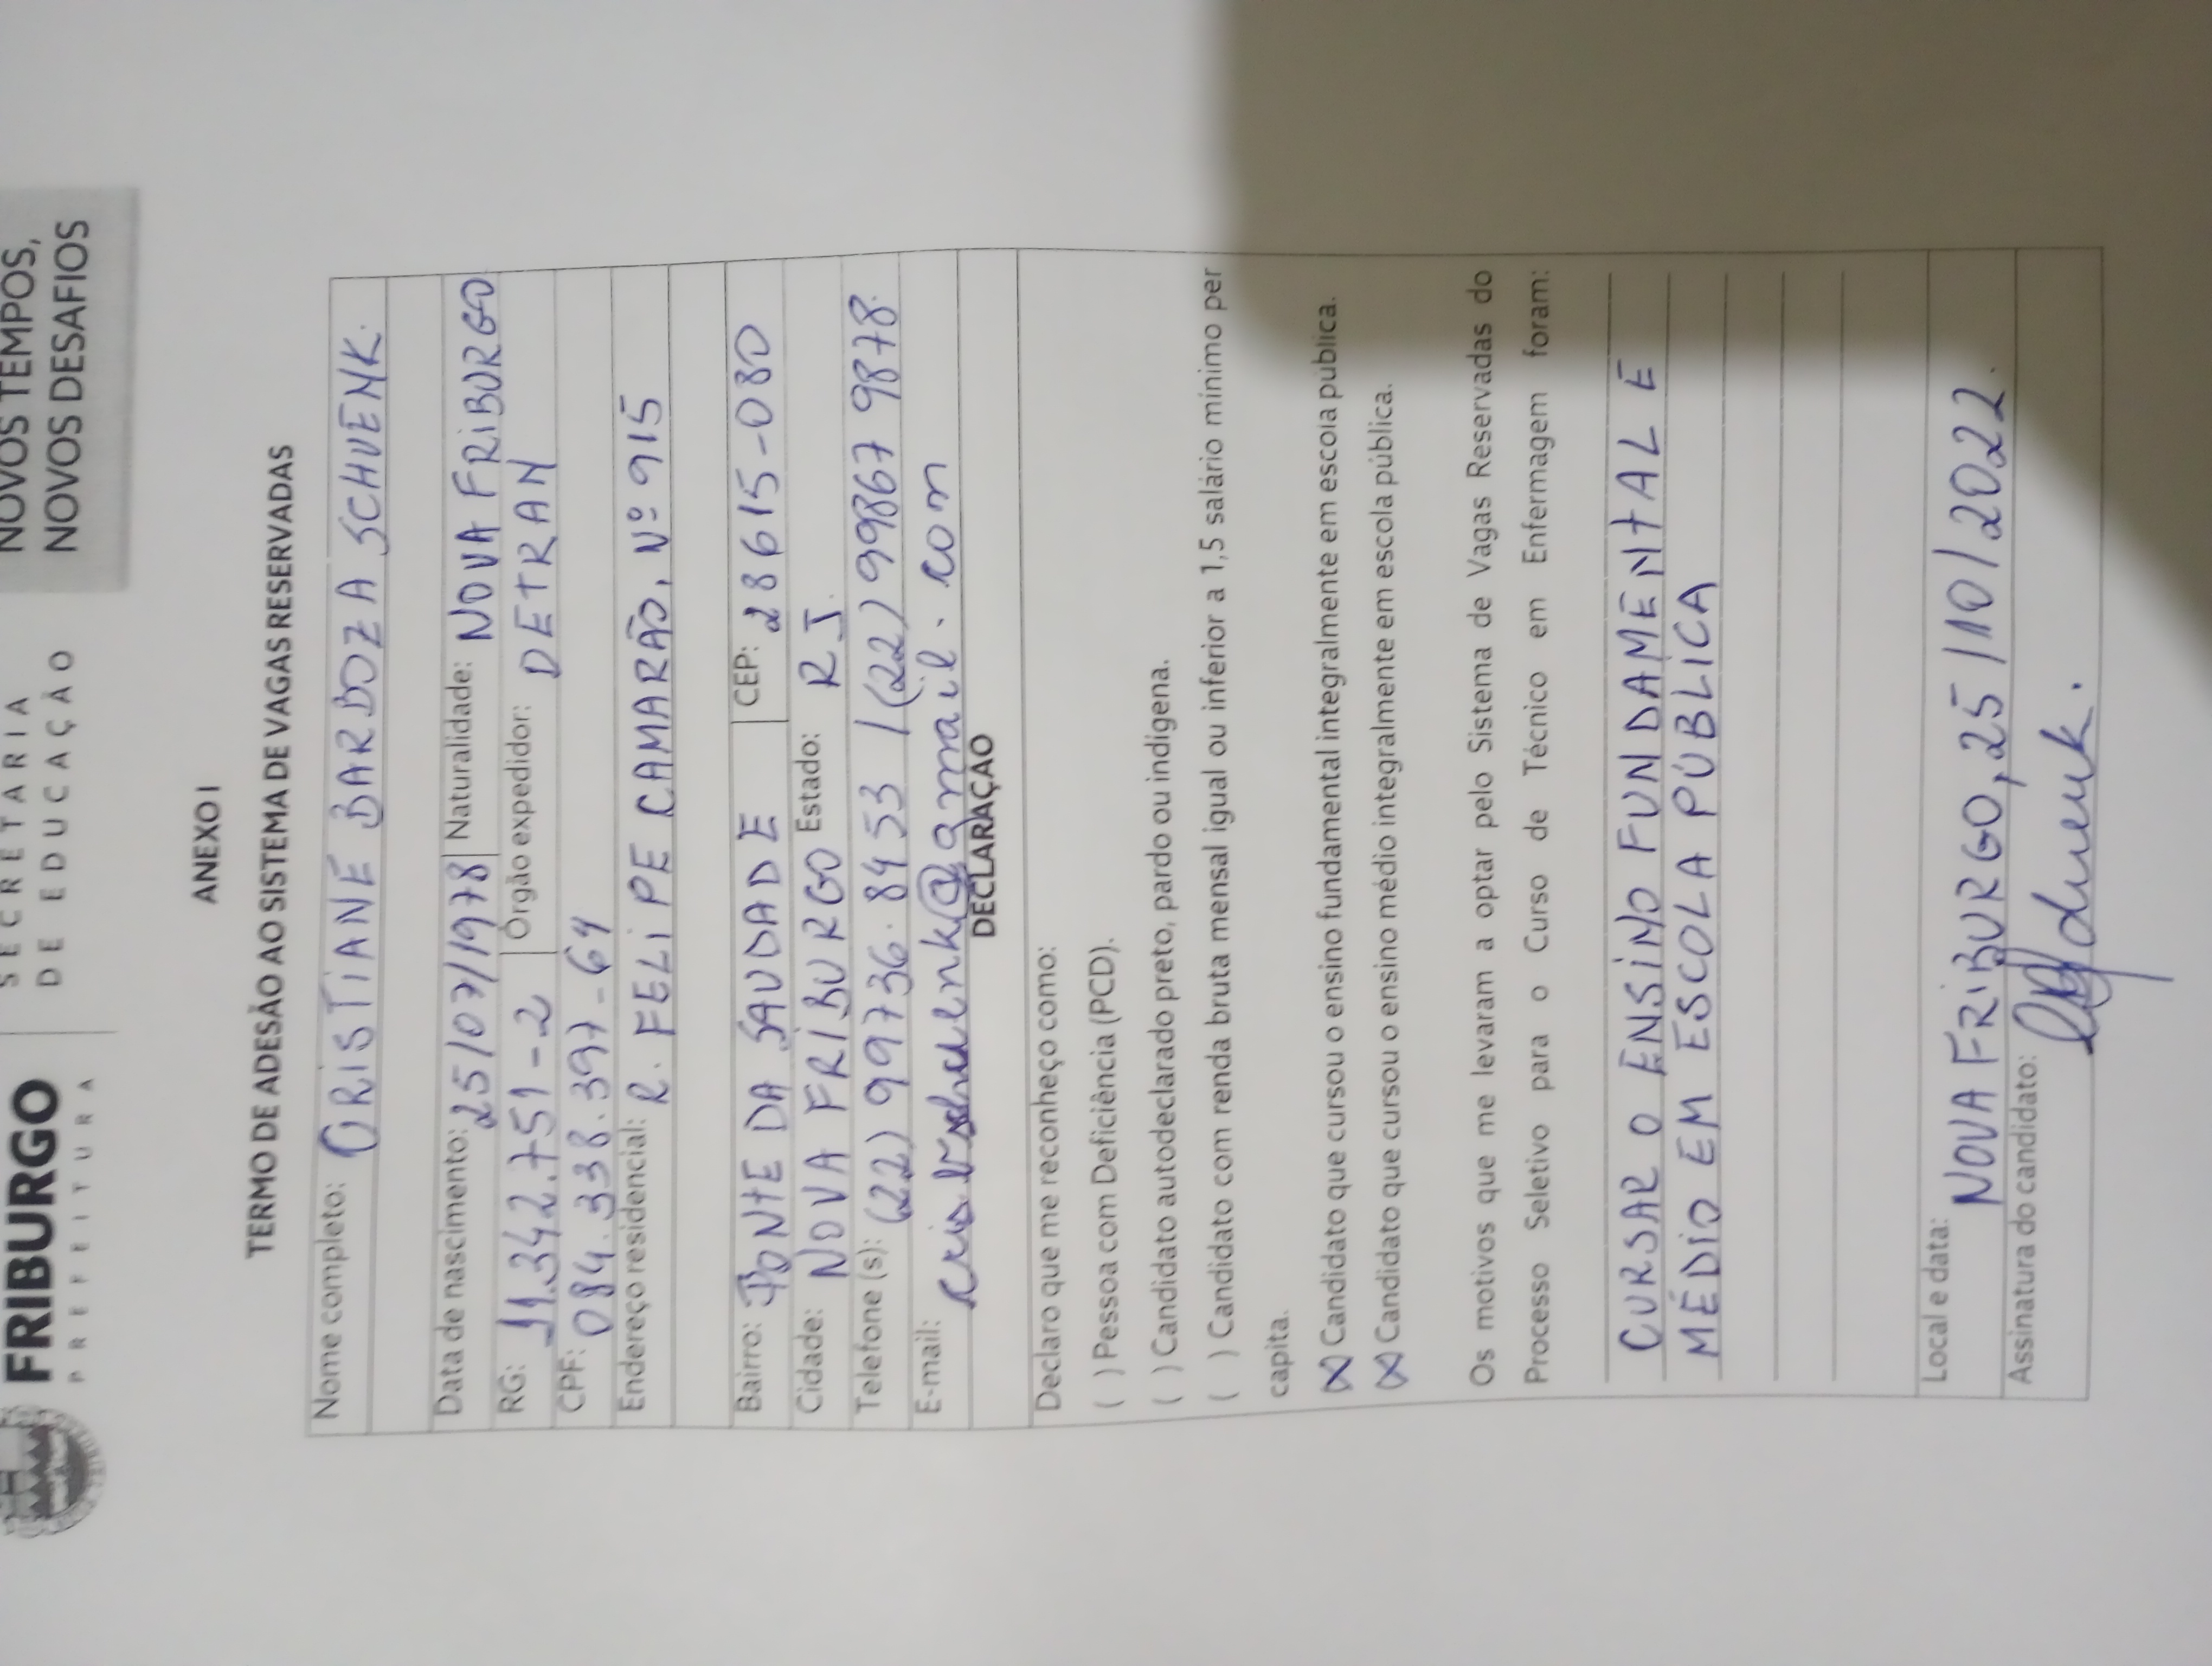 FRIBURGO
PREFEITURA
SECRETARIA
DE EDUCAÇÃO
NOVOS TEMPOS,
NOVOS DESAFIOS
ANEXO I
TERMO DE ADESÃO AO SISTEMA DE VAGAS RESERVADAS
Nome completo: CRISTIANE BARBOZA SCHUENK.
Data de nascimento: 25/07/1978 Naturalidade: NOVA FRIBURGO
RG: 11.342.751-2 Órgão expedidor: DETRAN
CPF: 084.338.397-64
Endereço residencial: R. FELIPE CAMARÃO, Nº 915
Bairro: PONTE DA SAUDADE CEP: 28615-080
Cidade: NOVA FRIBURGO Estado: RJ.
Telefone (s): (22) 99736.8453 / (22) 99867 9878.
E-mail: @gmail.com
DECLARAÇÃO
Declaro que me reconheço como:
( ) Pessoa com Deficiência (PCD).
( ) Candidato autodeclarado preto, pardo ou indigena.
( ) Candidato com renda bruta mensal igual ou inferior a 1,5 salário mínimo per
capita.
(X) Candidato que cursou o ensino fundamental integralmente em escola pública.
(X) Candidato que cursou o ensino médio integralmente em escola pública.
Os motivos que me levaram a optar pelo Sistema de Vagas Reservadas do
Processo Seletivo para o Curso de Técnico em Enfermagem foram:
CURSAR O ENSINO FUNDAMENTAL E
MÉDIO EM ESCOLA PÚBLICA
Local e data: NOVA FRIBURGO, 25/10/2022.
Assinatura do candidato: